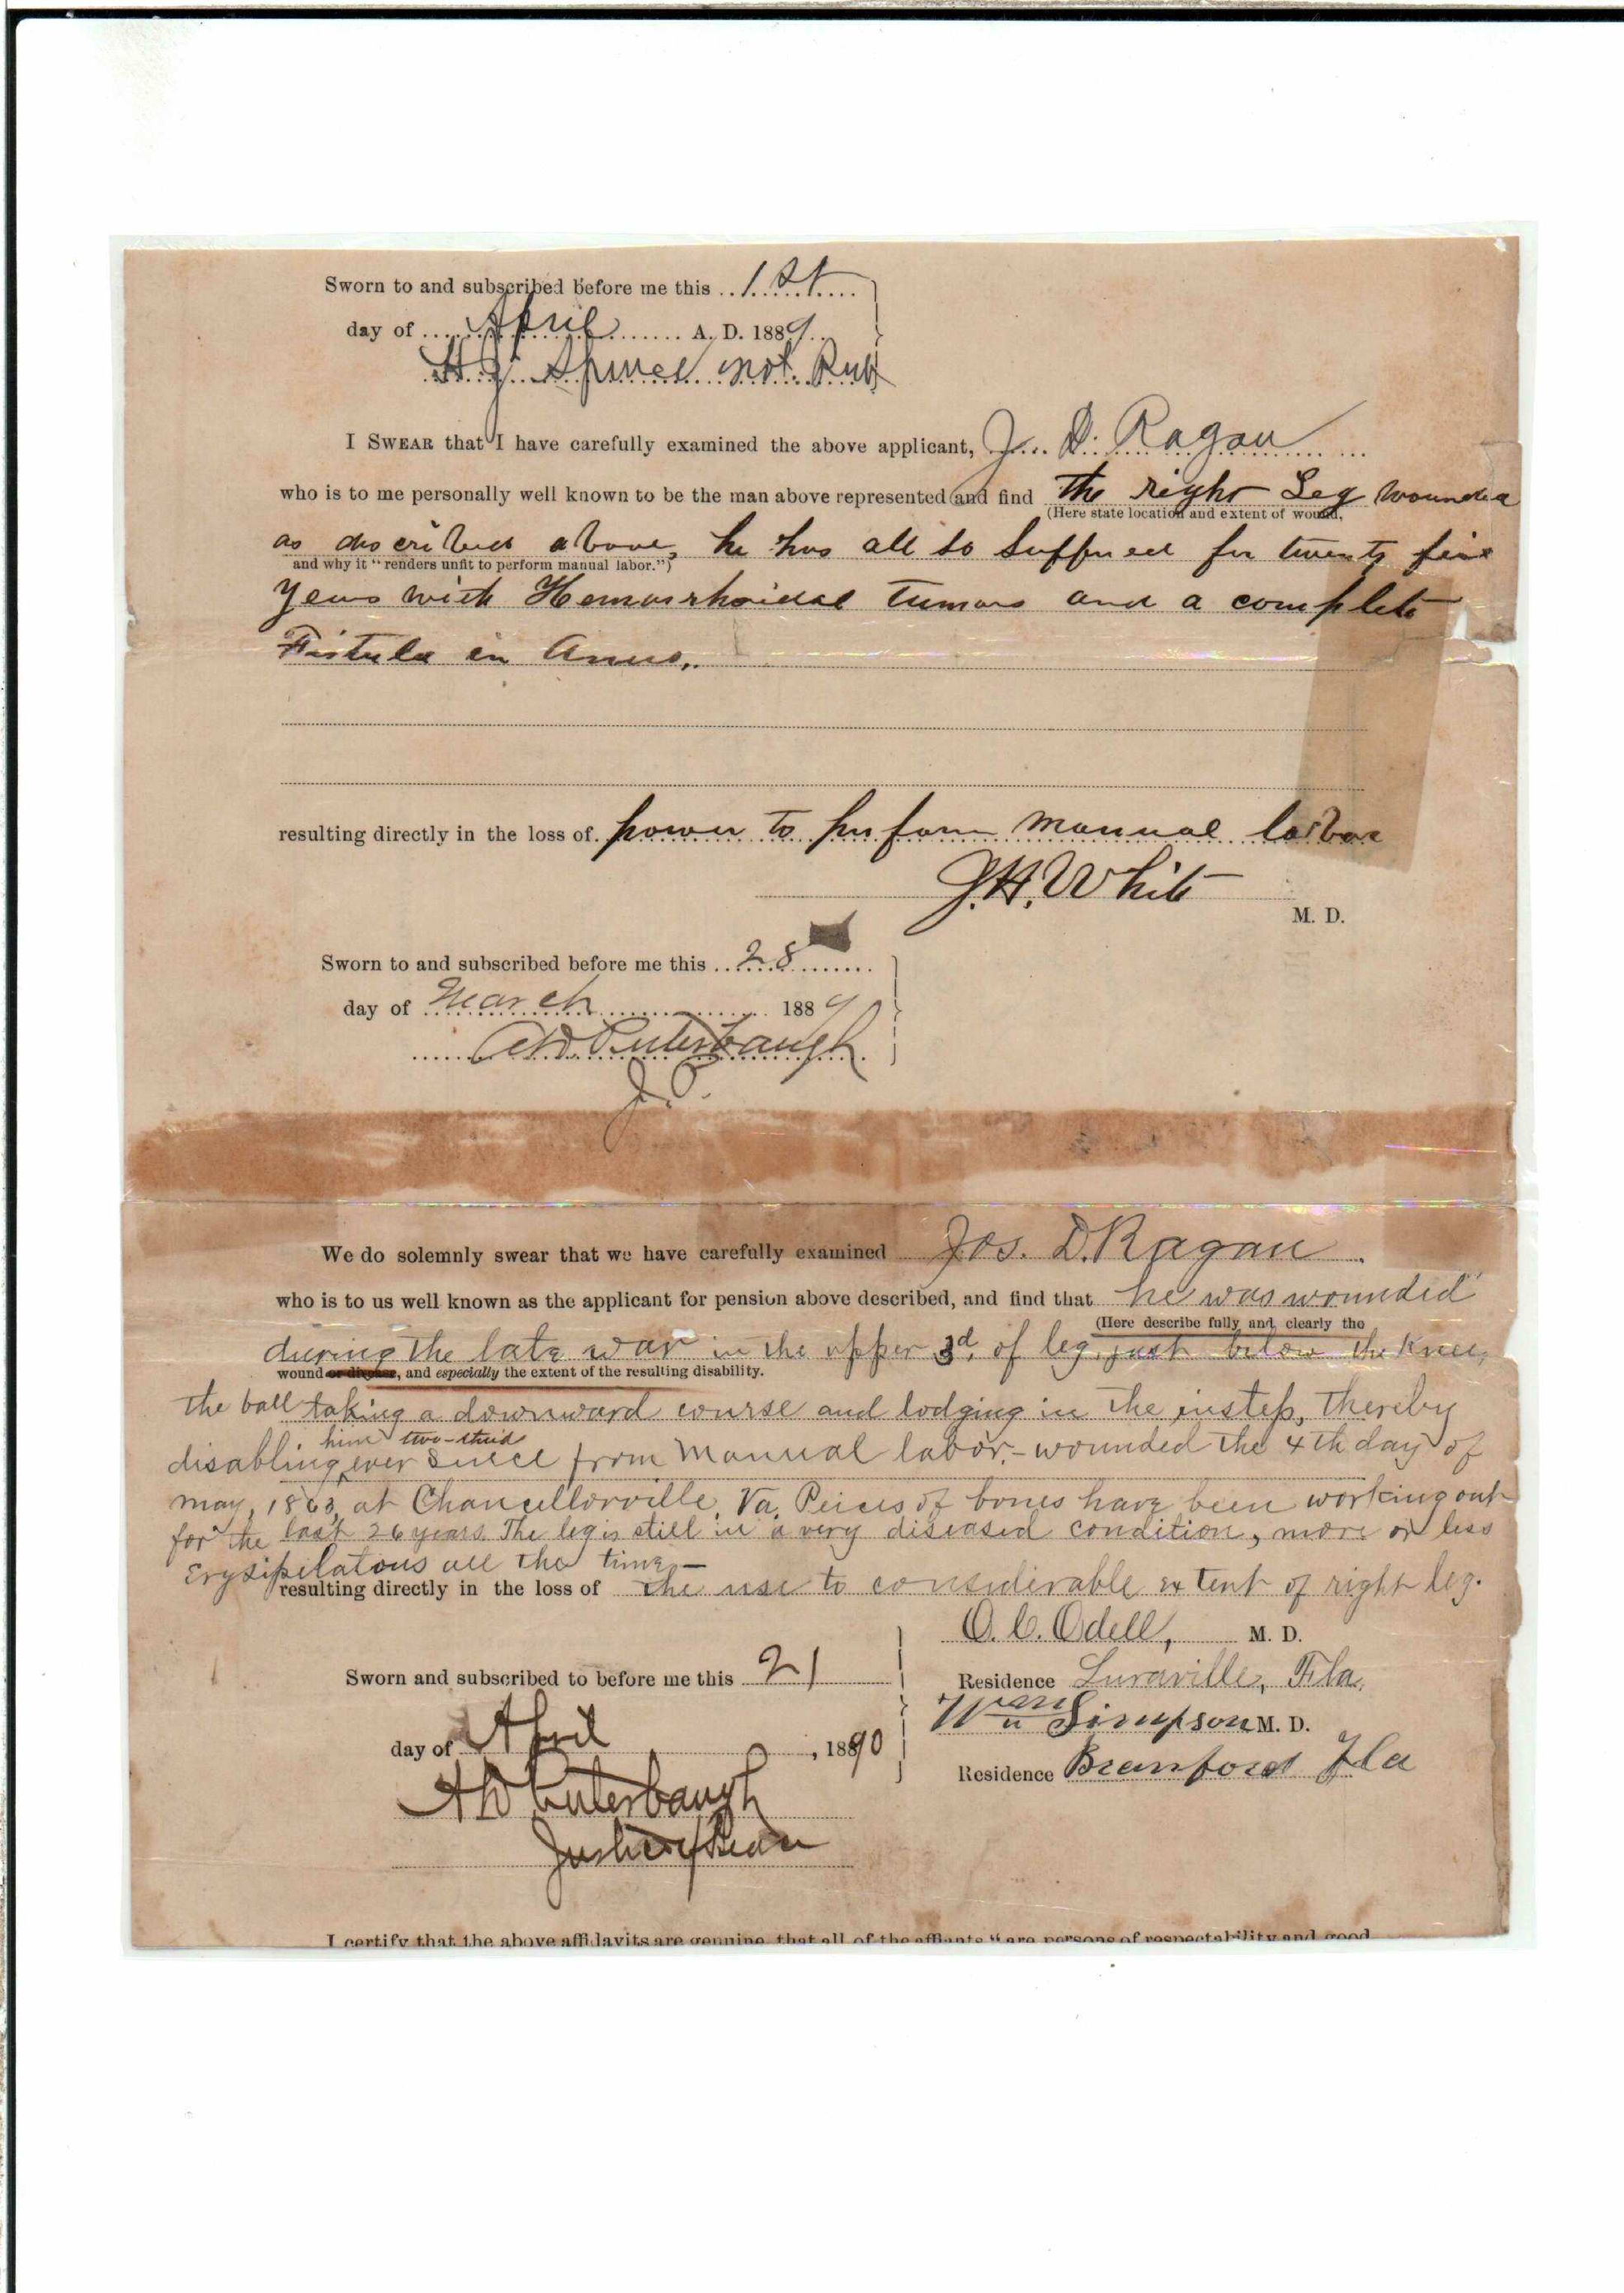 Sworn to and subscribed before me this 1st
day of April A. D. 1889
not. Pub
I SWEAR that I have carefully examined the above applicant, J. D. Ragan
who is to me personally well known to be the man above represented and find the right Leg wounded
(Here state location and extent of wound,
as discribed above, he has all so Suffered for twenty five
and why it "renders unfit to perform manual labor.")
years with Hemorrhoidal Tumors and a complete
Fistula in Anus.
resulting directly in the loss of power to perform manual labor
J. H. White
M. D.
Sworn to and subscribed before me this 28
day of March 1889
A W Puterbaugh
J. P.
We do solemnly swear that we have carefully examined Jos. D. Ragan
who is to us well known as the applicant for pension above described, and find that he was wounded
(Here describe fully and clearly the
during the late war in the upper 3d. of leg, just below the Knee,
wound or disease, and especially the extent of the resulting disability.
the ball taking a downward course and lodging in the instep, thereby
him two-third
disabling ever since from Manual labor.- wounded the 4th day of
May, 1863, at Chancellorville, Va. Peices of bones have been working out
for the last 26 years. The leg is still in a very diseased condition, more or less
Erysipelatous all the time,—
resulting directly in the loss of the use to considerable extent of right leg.
O. C. Odell, M. D.
Sworn and subscribed to before me this 21
Residence Luraville, Fla.
Wm Simpson M. D.
day of April, 1890
Residence Branford Fla
A W Puterbaugh
Justice of Peace
I certify that the above affidavits are genuine, that all of the affiants "are persons of respectability and good